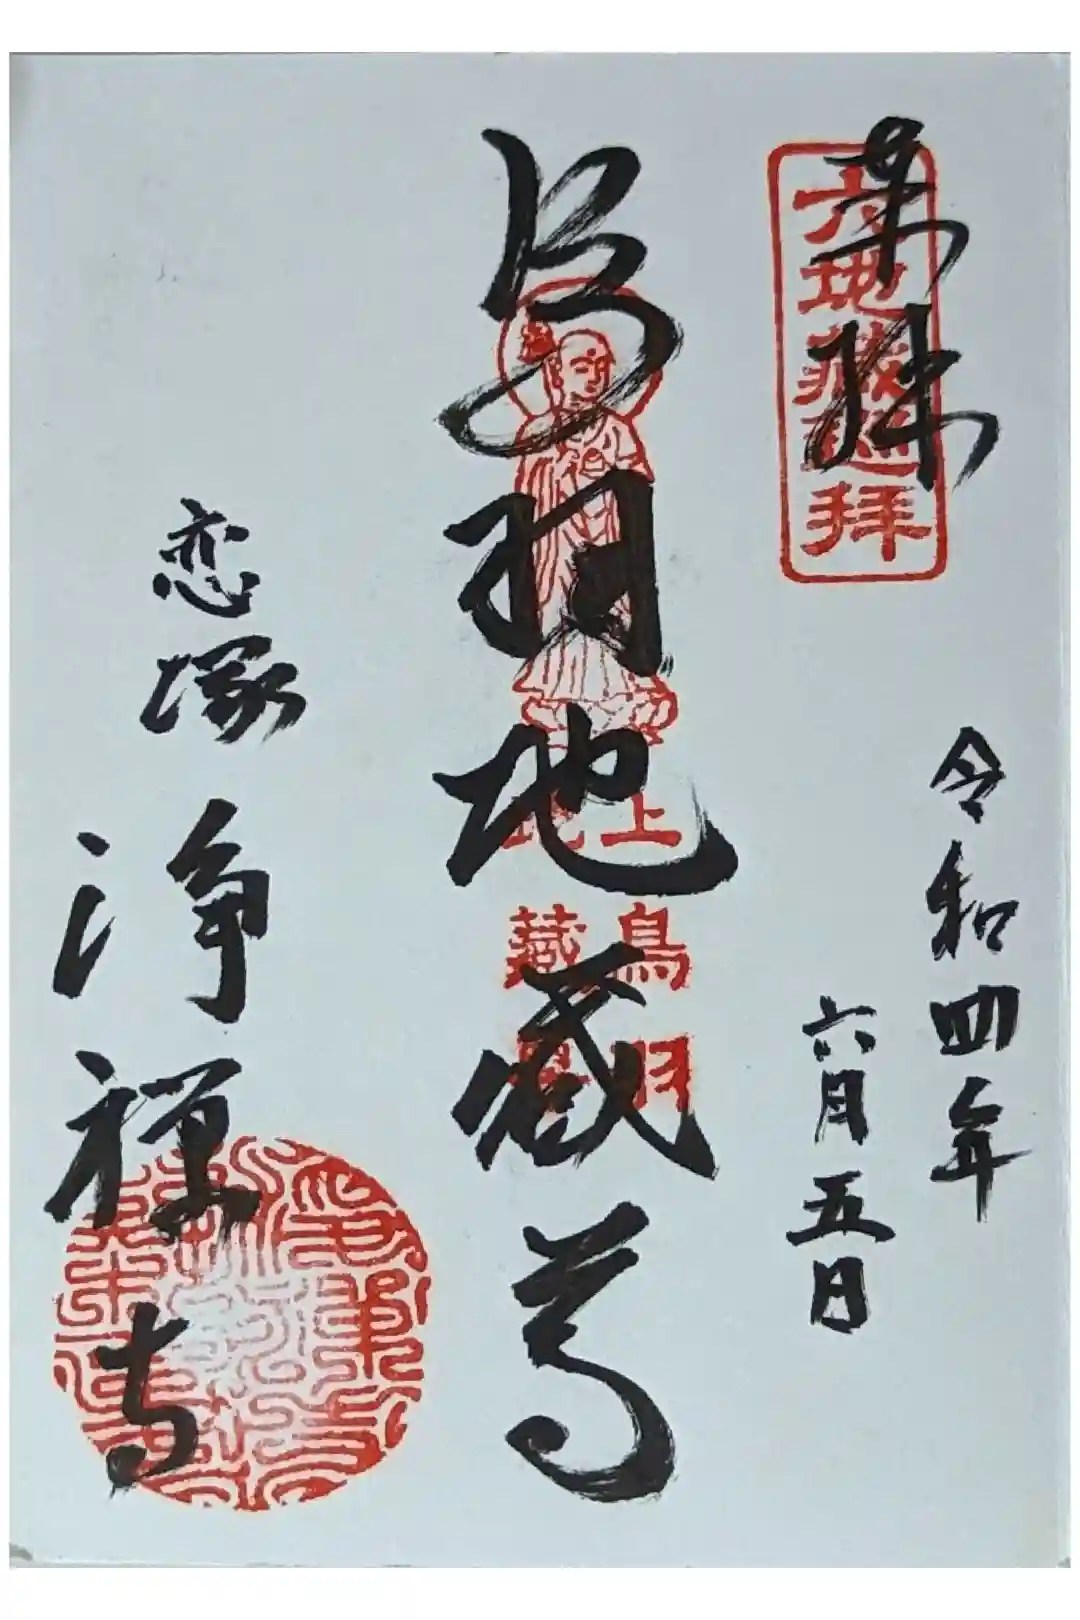 奉拝
六地蔵廻拝
令和四年
六月五日
鳥羽地蔵尊
上鳥羽
地蔵尊
恋塚
浄禅寺